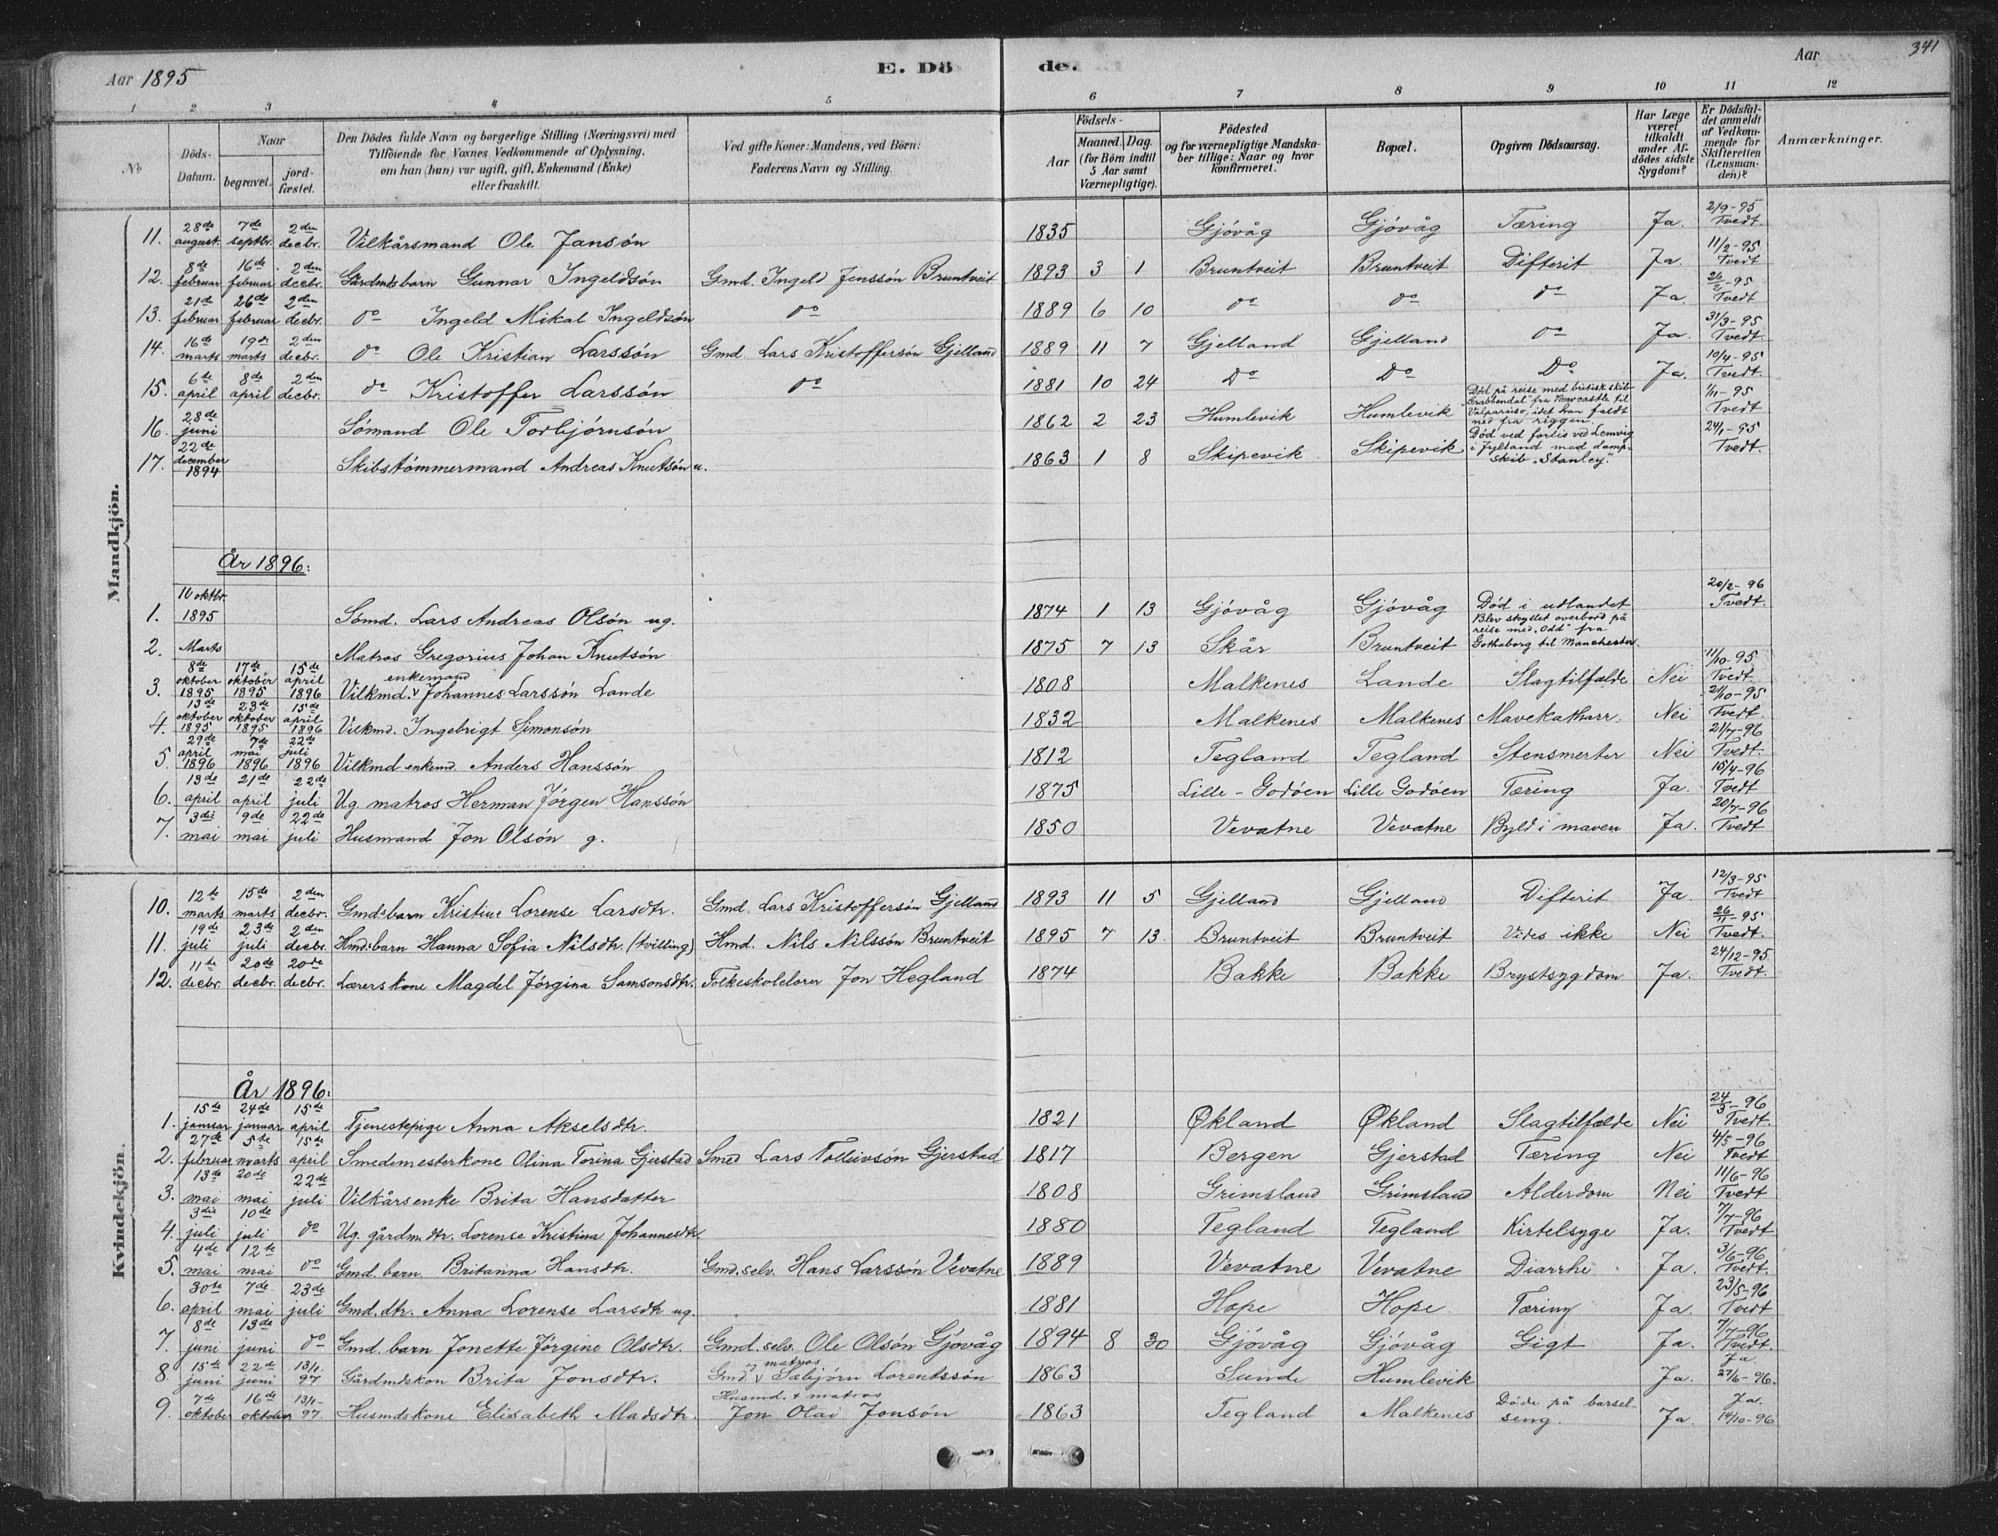 Aar 1895 E. Döde. Aar 341
1 2 3 4 5 6 7 8 9 10 11 12
No
Döds-Datum.
Naar begravet. jordfæstet.
Den Dödes fulde Navn og borgerlige Stilling (Næringsvei) med Tilföiende for Voxnes Vedkommende af Oplysning, om han (hun) var ugift, gift, Enkemand (Enke) eller fraskilt.
Ved gifte Koner: Mandens, ved Börn: Faderens Navn og Stilling.
Födsels- Aar Maaned. Dag. (for Börn indtil 5 Aar samt Værnepligtige).
Födested og for værnepligtige Mandskaber tillige: Naar og hvor konfirmeret.
Bopæl.
Opgiven Dödsaarsag.
Har Læge været tilkaldt under Afdödes sidste Sygdom?
Er Dödsfaldet anmeldt af Vedkommende for Skifteretten (Lensmanden)?
Anmærkninger.
Mandkjön.
11. 28de august. 7de septbr. 2den decbr. Vilkårsmand Ole Jansön 1835 Gjövåg Gjövåg Tæring Ja. 2/9-95 Tvedt
12. 8de februar 16de februar 2den decbr. Gårdmdsbarn Gunnar Ingeldsön Gmd. Ingeld Jenssön Bruntveit 1893 3 1 Bruntveit Bruntveit Difterit Ja. 11/2-95 Tvedt
13. 21de februar 26de februar 2den decbr. do Ingeld Mikal Ingeldsön do 1889 6 10 do do do Ja. 26/2-95 Tvedt
14. 16de marts 19de marts 2den decbr. do Ole Kristian Larssön Gmd. Lars Kristoffersön Gjelland 1889 11 7 Gjelland Gjelland do Ja. 31/3-95 Tvedt
15. 6te april 8de april 2den decbr. do Kristoffer Larssön do 1881 10 24 Do Do Do Ja. 10/4-95 Tvedt.
16. 28de juni Sömand Ole Torbjörnsön 1862 2 23 Humlevik Humlevik Död på reise med britisk skib "Grabbendal" fra Newcastle til Valparaiso, idet han faldt ned fra riggen. 1/11-95 Tvedt
17. 22de december 1894 Skibstömmermand Andreas Knutsön u. 1863 1 8 Skipevik Skipevik Död ved forlis ved Lemvig i Jylland med dampskib "Stanley". 24/1-95 Tvedt.
År 1896:
1. 10 oktbr. 1895 Sömd. Lars Andreas Olsön ug. 1874 1 13 Gjövåg Gjövåg Död i udlandet 20/2-96 Tvedt.
2. Marts Matros Gregorius Johan Knutsön 1875 7 13 Skår Bruntveit Blev skyllet overbord på reise med "Odd" fra Gothaborg til Manchester.
3. 8de oktober 1895 17de oktober 1895 15de april 1896 Vilkmd. enkemand Johannes Larssön Lande 1808 Malkenes Lande Slagtilfælde Nei 11/10-95 Tvedt
4. 13de oktober 1895 23de oktober 1895 15de april 1896 Vilkmd. Ingebrigt Simonsön 1832 Malkenes Malkenes Mavekatharr. Nei 21/10-95 Tvedt
5. 29de april 1896 7de mai 1896 22de juli 1896 Vilkmd enkemd. Anders Hanssön 1812 Tegland Tegland Stensmerter Nei 21/7-96 Tvedt
6. 13de april 21de april 22de juli Ug. matros Herman Jörgen Hanssön 1875 Lille-Godöen Lille Godöen Tæring Ja. 15/4-96 Tvedt
7. 3die mai 9de mai 22de juli Husmand Jon Olsön g. 1850 Vevatne Vevatne Byld i maven Ja. 20/7-96 Tvedt
Kvindekjön.
10. 12te marts 15de marts 2den decbr. Gmdsbarn Kristine Lorense Larsdtr. Gmd. Lars Kristoffersön Gjelland 1893 11 5 Gjelland Gjelland Difterit Ja 12/3-95 Tvedt
11. 19de juli 23de juli 2den decbr. Hmdsbarn Hanna Sofia Nilsdtr. (tvilling) Hmd. Nils Nilssön Bruntveit 1895 7 13. Bruntveit Bruntveit Vides ikke Nei 26/11-95 Tvedt.
12. 11te decbr. 20de decbr. 20de decbr. Lærerskone Magdel Jörgina Samsonsdtr. Folkeskolelærer Jon Hegland 1874 Bakke Bakke Brystsygdom Ja. 24/12-95 Tvedt.
År 1896:
1. 15de januar 24de januar 15de april Tjenestepige Anna Akselsdtr. 1821 Økland Økland Slagtilfælde Nei 24/3-96 Tvedt.
2. 27de februar 5te marts 15de april Smedemesterkone Olina Torina Gjerstad Smed Lars Tolleivsön Gjerstad 1817 Bergen Gjerstad Tæring Nei 4/5-96 Tvedt
3. 13de mai 20de mai 22de juli Vilkårsenke Brita Hansdatter 1808 Grimsland Grimsland Alderdom Nei 11/6-96 Tvedt
4. 3die juli 10de juli do Ug. gårdm.dtr. Lorense Kristina Johannesdtr. 1880 Tegland Tegland Kirtelsyge Ja. 7/7-96 Tvedt
5. 4de mai 12te mai do Gmd. barn Britanna Hansdtr. Gmd. selv. Hans Larssön Vevatne 1889 Vevatne Vevatne Diarrhe Ja. 3/6-96 Tvedt.
6. 30te april 7de mai 23de juli Gmd. dtr. Anna Lorense Larsdtr ug. 1881 Hope Hope Tæring Ja. 23/5-96 Tvedt
7. 8de juni 13de juni do Gmd. barn Jonette Jörgine Olsdtr. Gmd. selv. Ole Olsön Gjövåg 1894 8 30 Gjövåg Gjövåg Gigt Ja. 7/7-96 Tvedt.
8. 15de juni 22de juni 13/1-97 Gårdmdskon Brita Jonsdtr. Gmd matros Lorentssön 1863 Sunde Humlevik Ja. Ja 27/6-96.
9. 7de oktober 16de oktober 13/1-97. Husmdskone Elisabeth Madsdtr. Husmd. + matros Jon Olai Jonsön 1863 Tegland Malkenes Döde på barselseng. Ja. Ja. 14/10-96